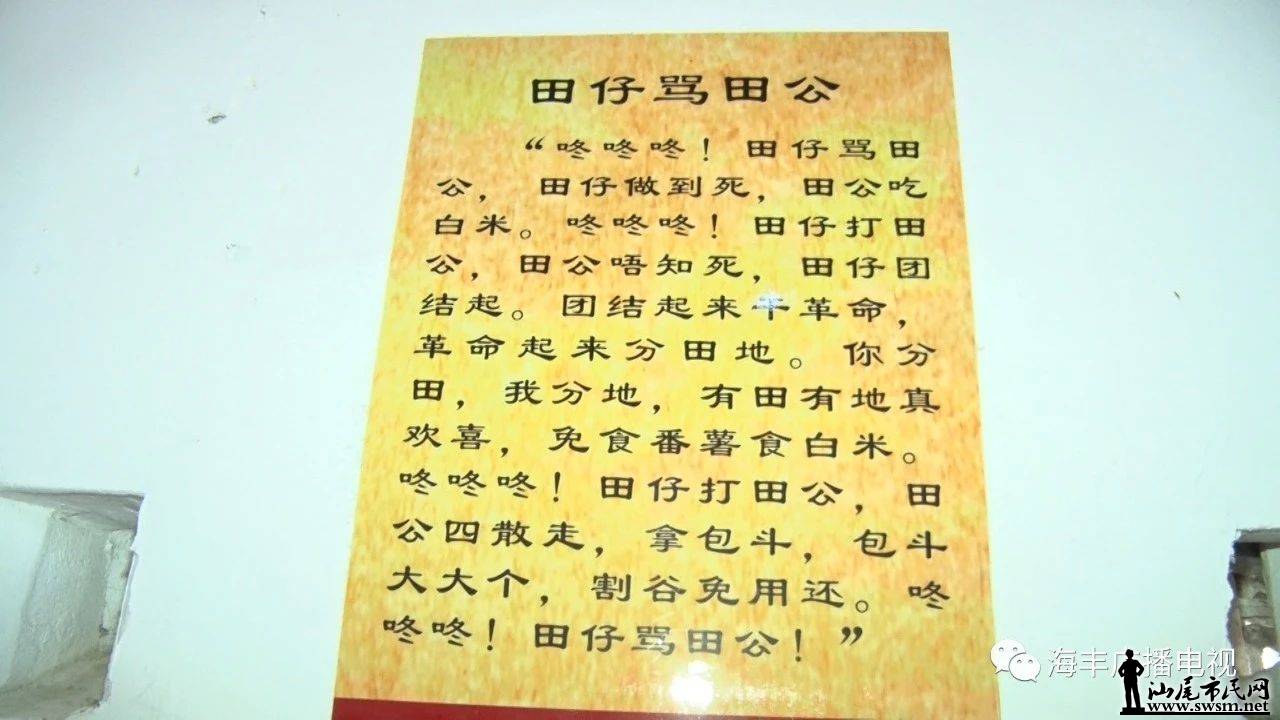 田仔骂田公
“咚咚咚！田仔骂田
公，田仔做到死，田公吃
白米。咚咚咚！田仔打田
公，田公唔知死，田仔团
结起。团结起来干革命，
革命起来分田地。你分
田，我分地，有田有地真
欢喜，免食番薯食白米。
咚咚咚！田仔打田公，田
公四散走，拿包斗，包斗
大大个，割谷免用还。咚
咚咚！田仔骂田公！”
海丰广播电视
汕尾市民网
www.swsm.net